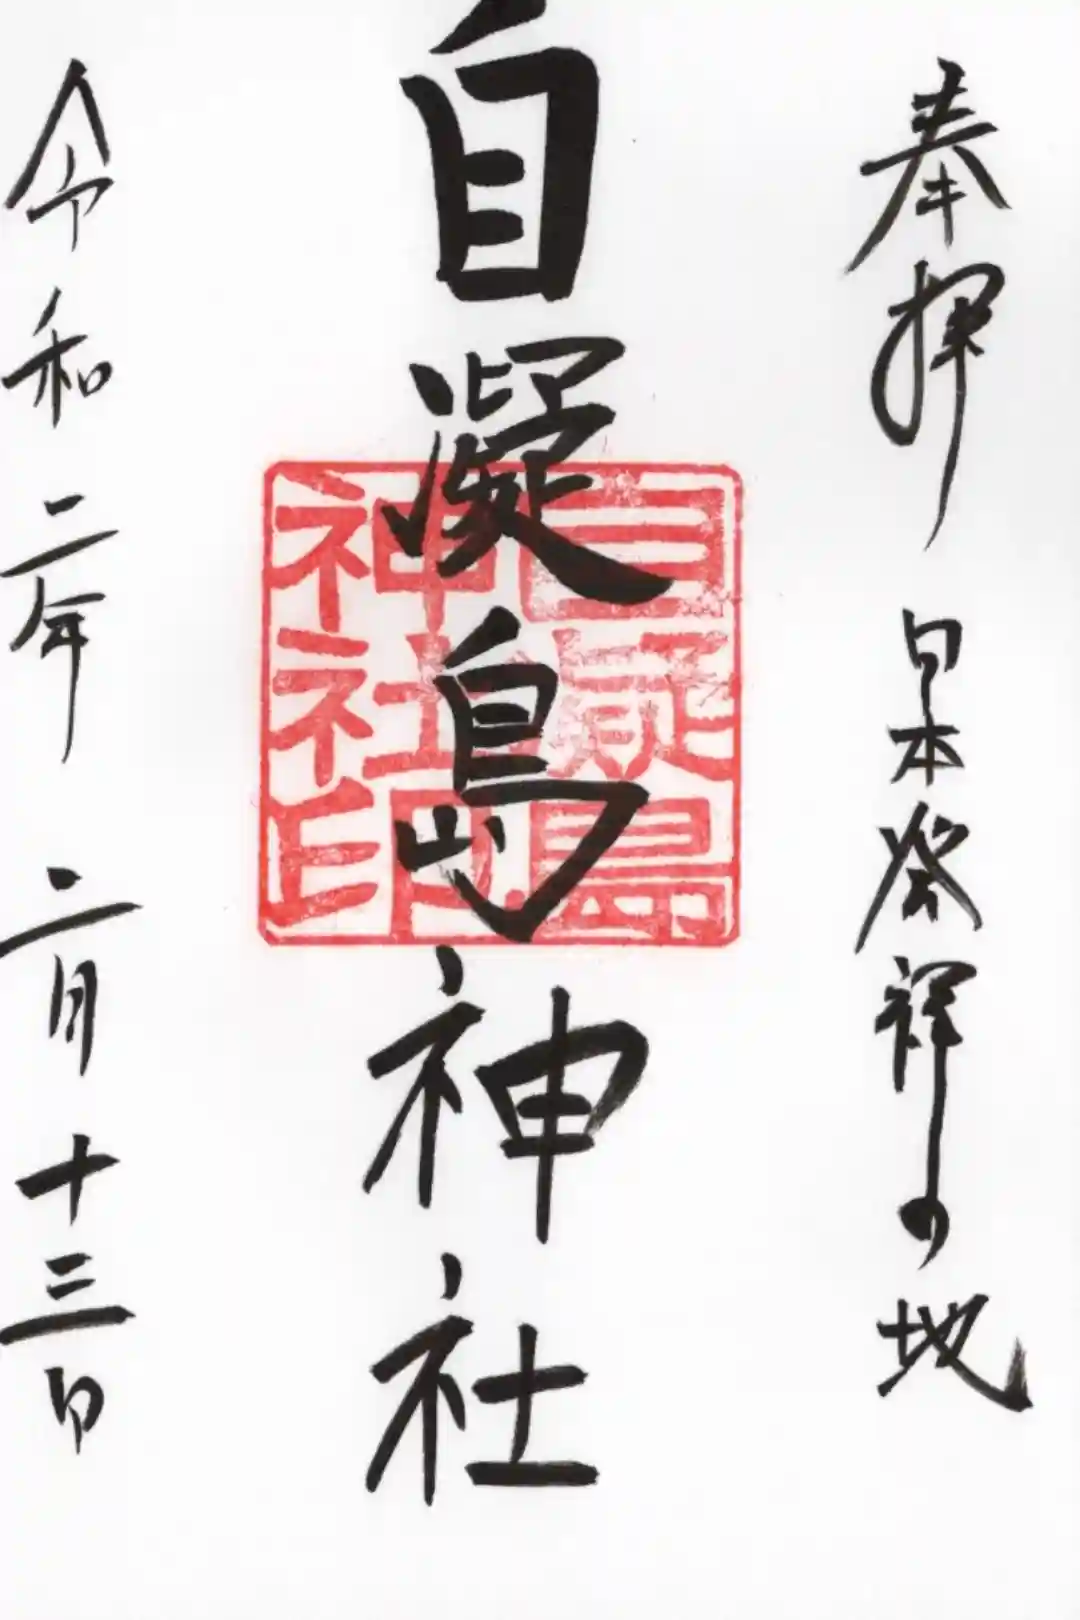 奉拝 日本発祥の地
自凝島神社
自凝島
神社印
令和二年 二月十三日